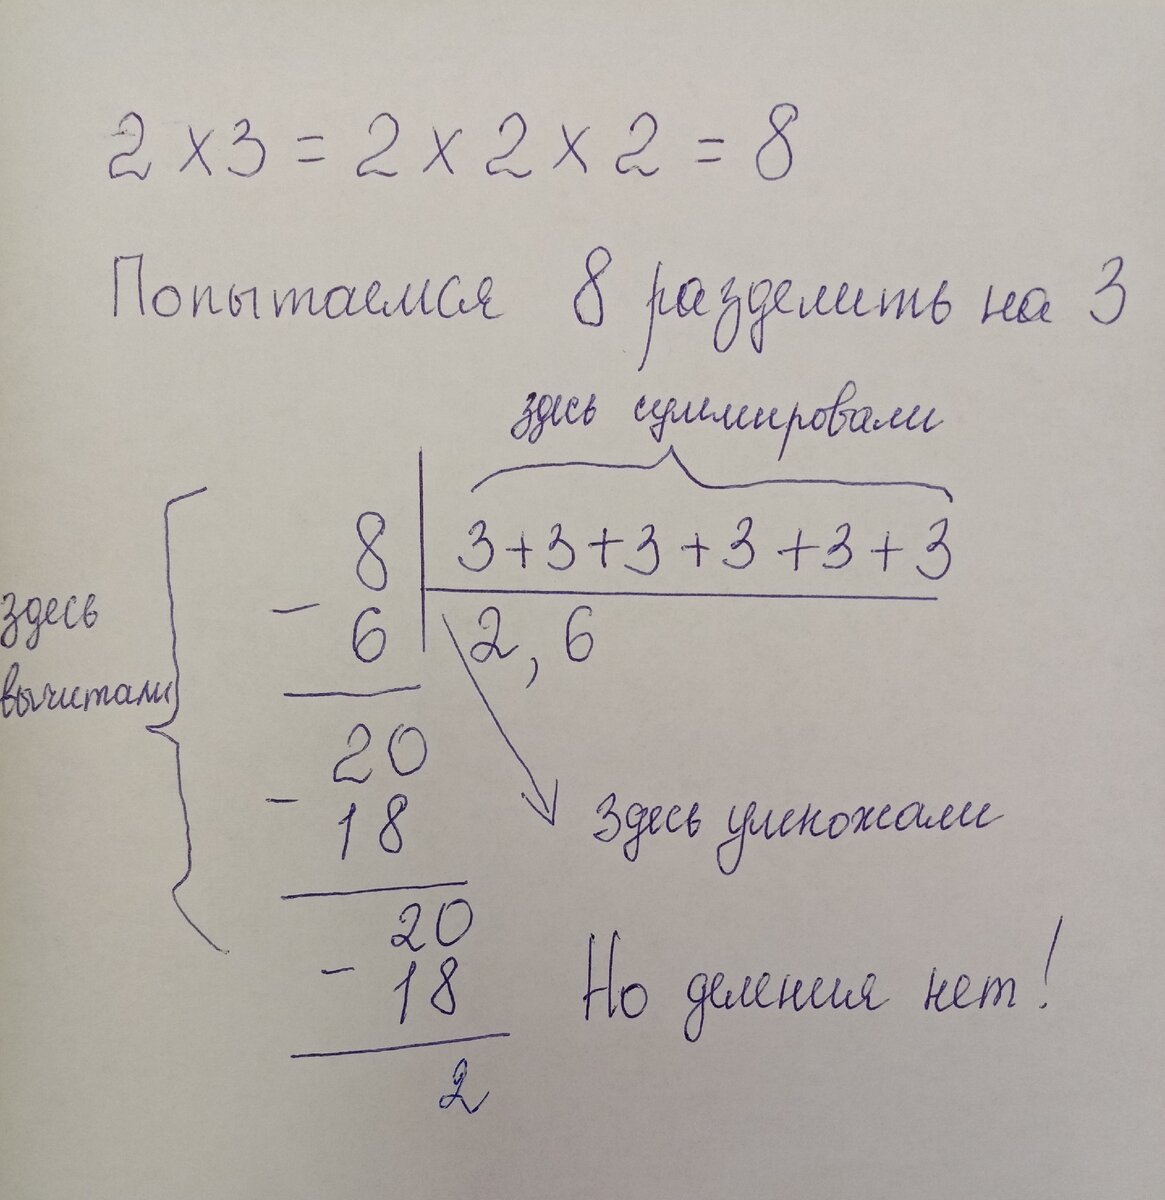 2 × 3 = 2 × 2 × 2 = 8
Попытаемся 8 разделить на 3
здесь суммировали
8 3+3+3+3+3+3
− 6 2,6
здесь
вычитали
20
− 18
здесь умножали
20
− 18
Но деления нет!
2